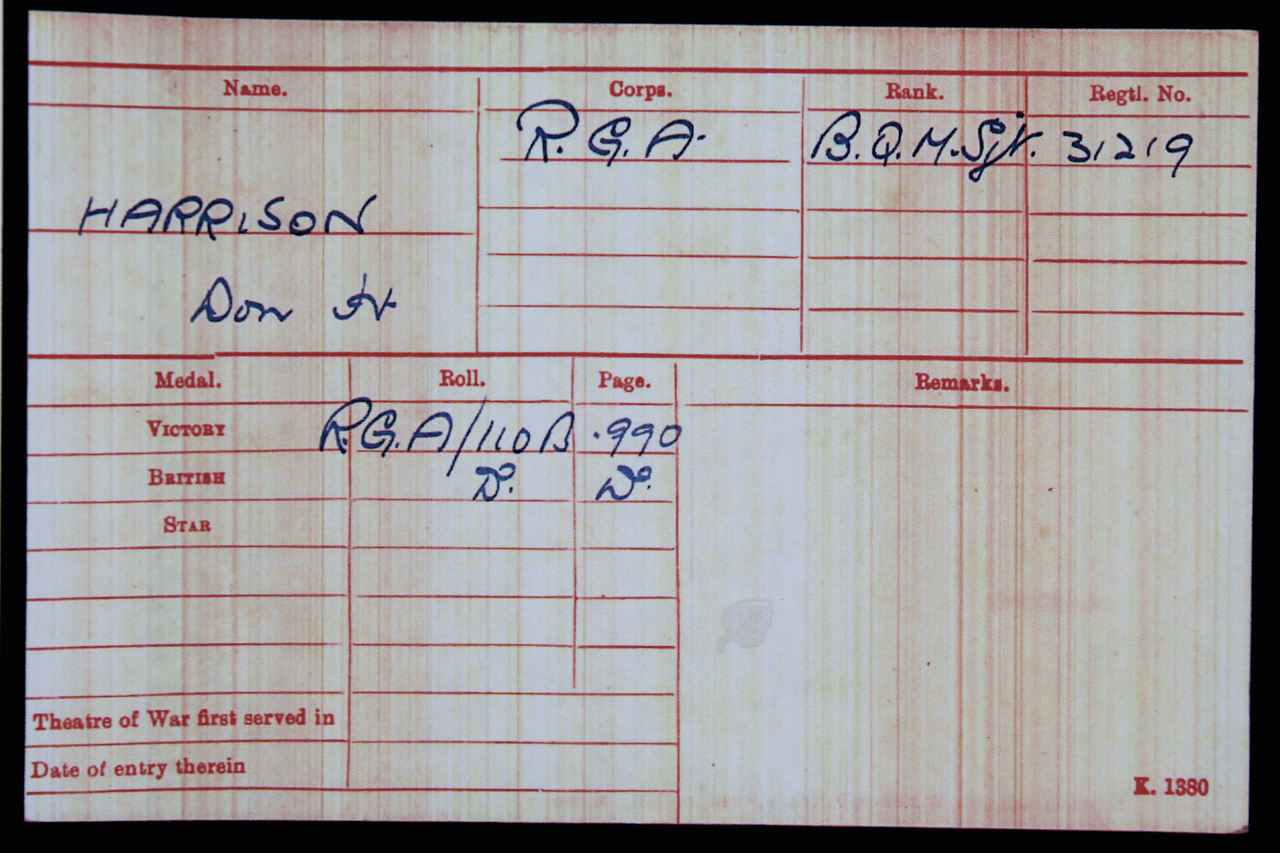 Name. Corps. Rank. Regtl. No.
R.G.A. B.Q.M.Sjt. 31219
HARRISON
Don H
Medal. Roll. Page. Remarks.
VICTORY R.G.A/110B .990
BRITISH Do. Do.
STAR
Theatre of War first served in
Date of entry therein
K. 1380